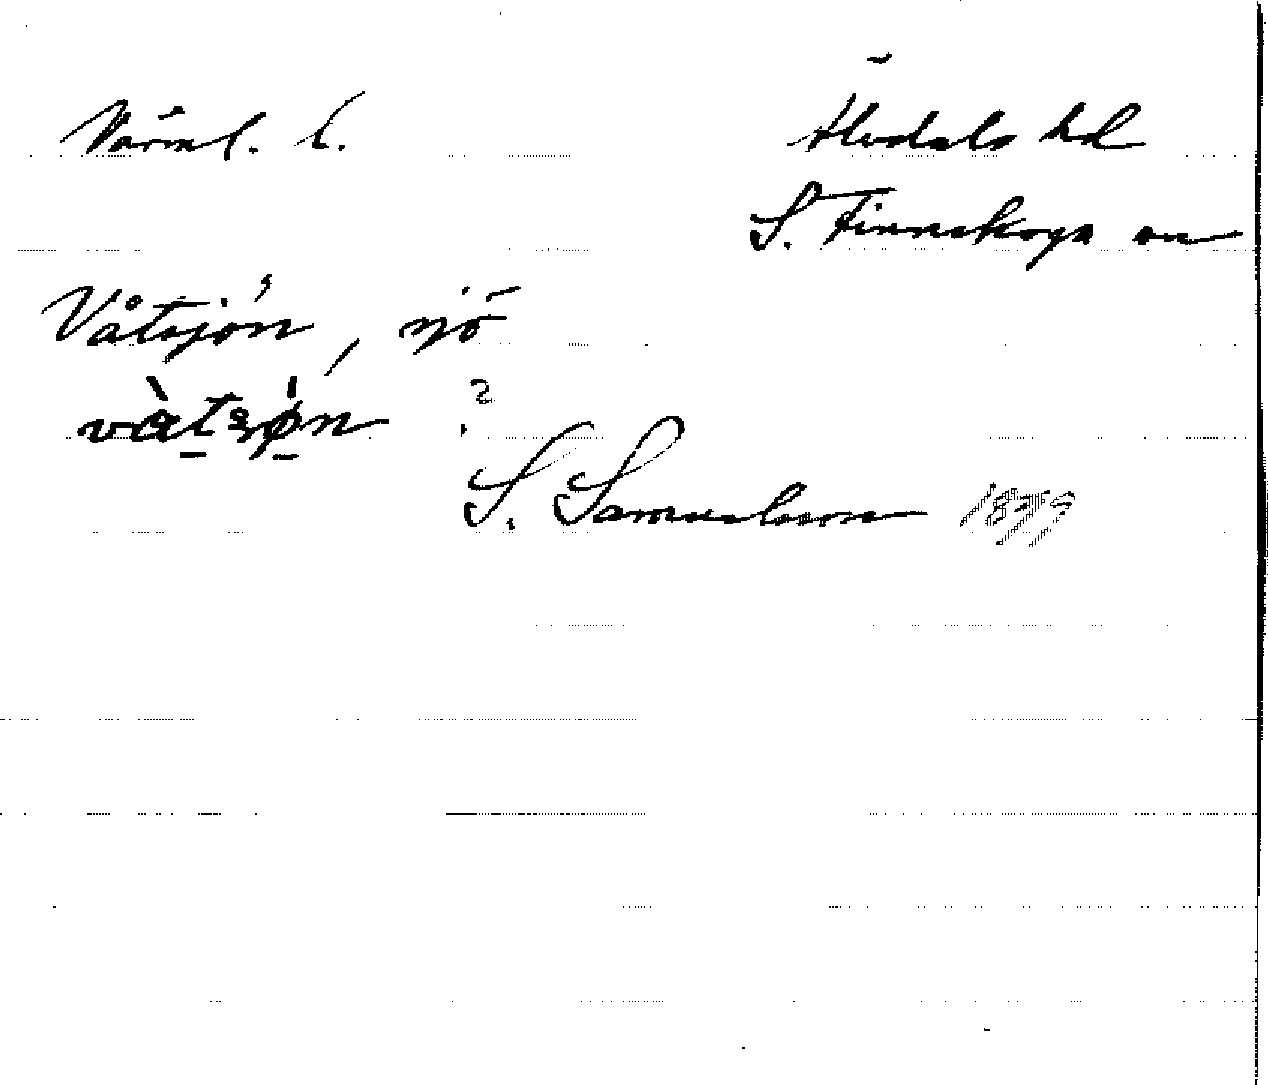 Värml. l.
Älvdals hd
S. Finnskoga sn
Våtsjön, sjö
vàtsøn ?
S. Samuelsson 1879